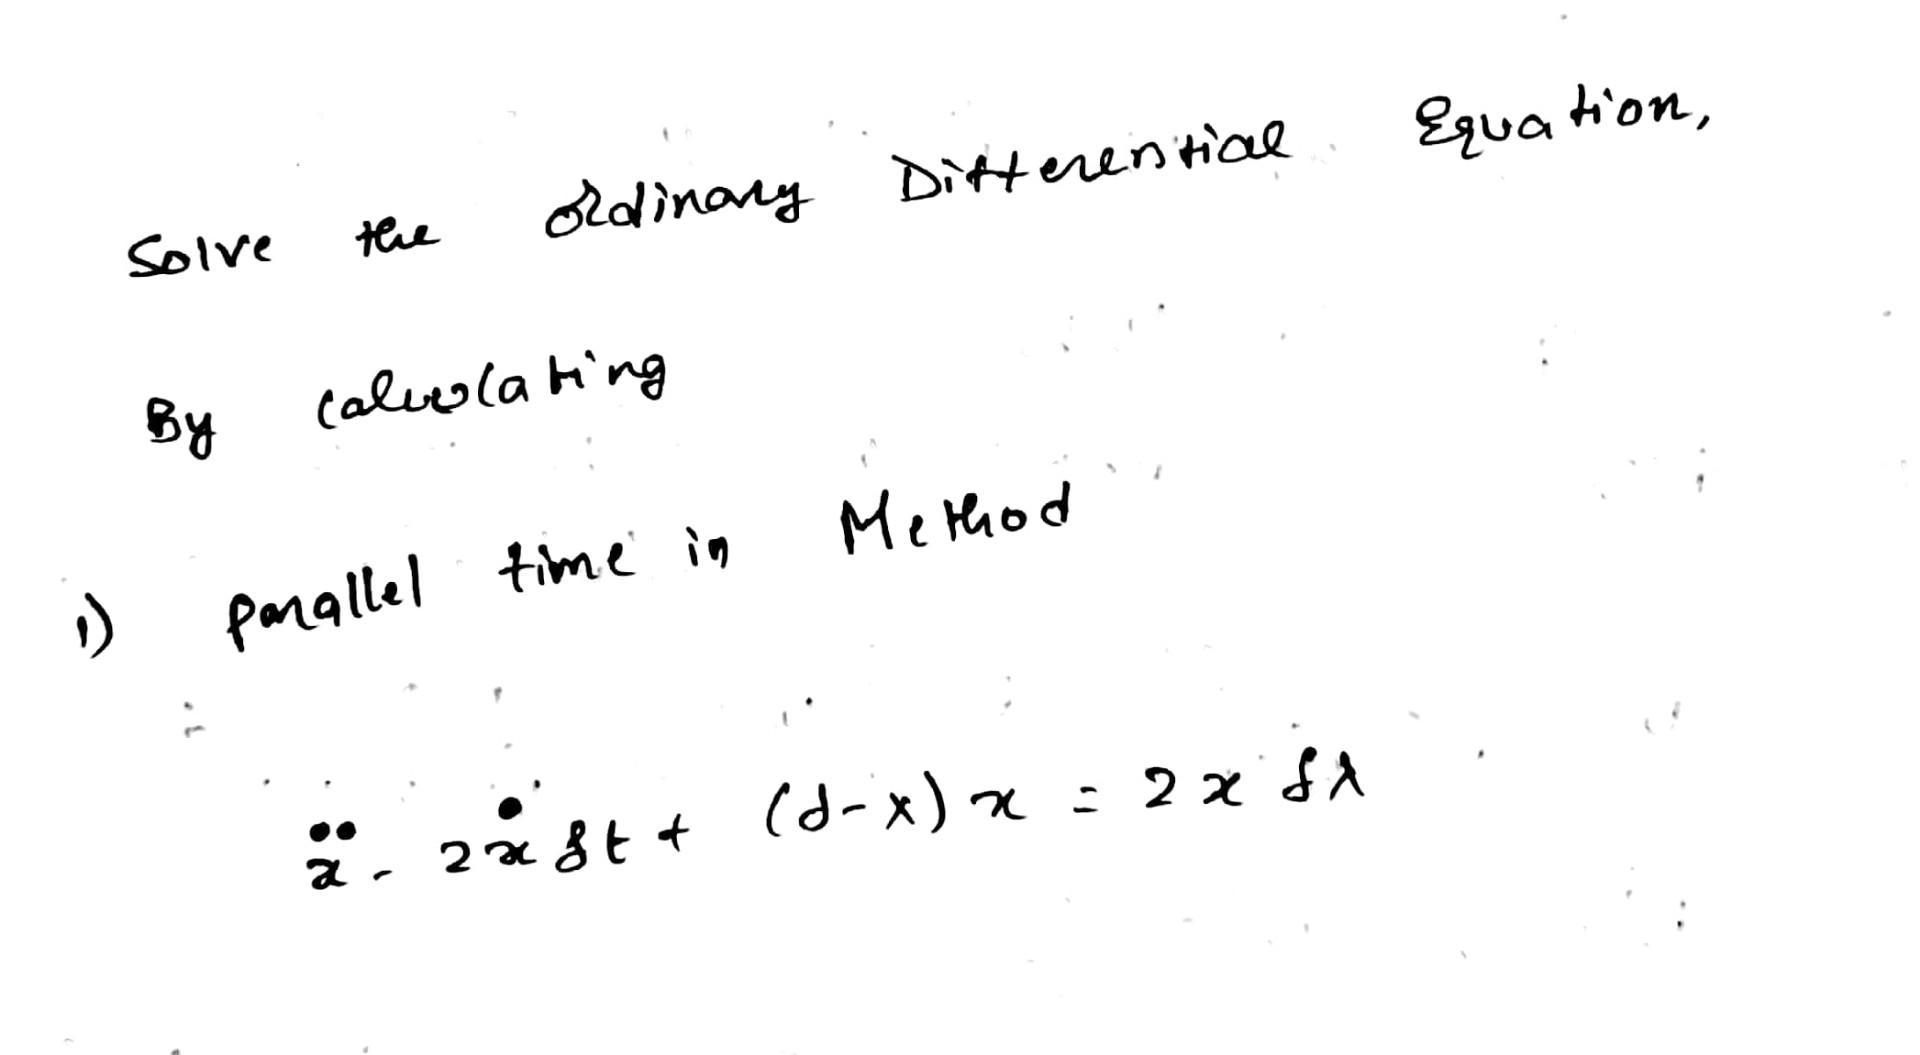 Solve the ordinary Differential Equation,
By calculating
1) parallel time in Method
ẍ - 2ẋ δt + (d-x) x = 2x δλ